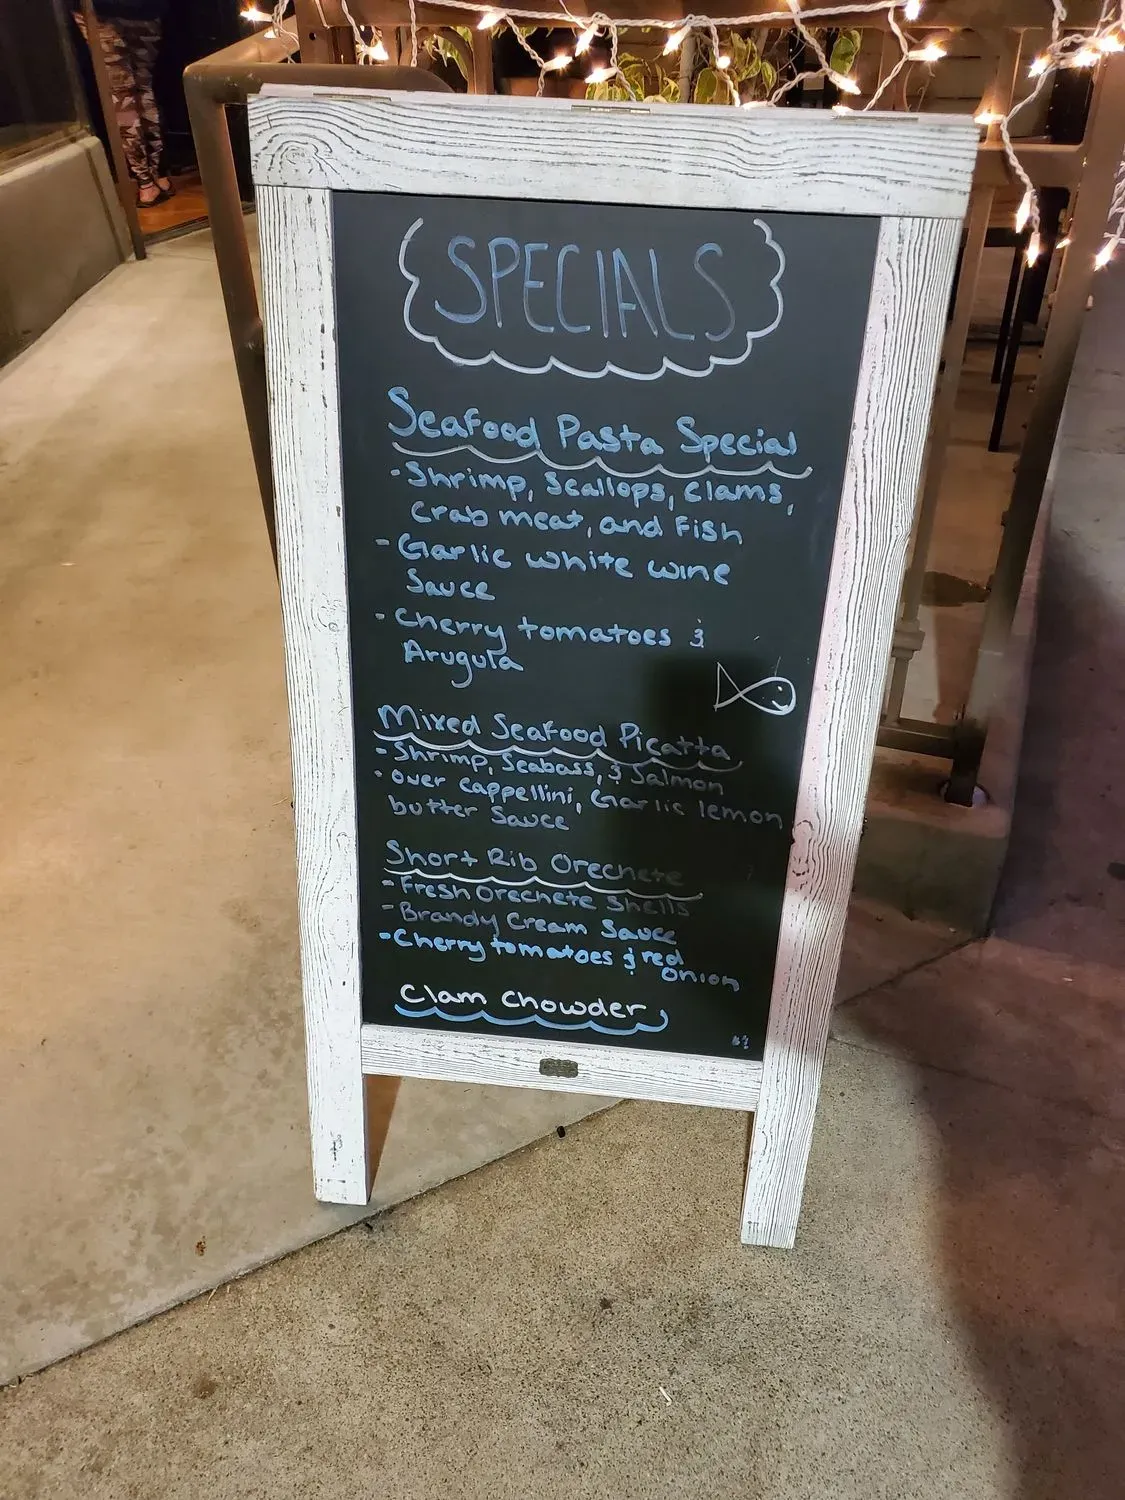 SPECIALS
Seafood Pasta Special
- Shrimp, Scallops, Clams,
Crab meat, and Fish
- Garlic white wine
Sauce
- Cherry tomatoes &
Arugula
Mixed Seafood Picatta
- Shrimp, Seabass, & Salmon
- over cappellini, Garlic lemon
butter Sauce
Short Rib Orechete
- Fresh Orechete Shells
- Brandy Cream Sauce
- Cherry tomatoes & red
onion
Clam Chowder